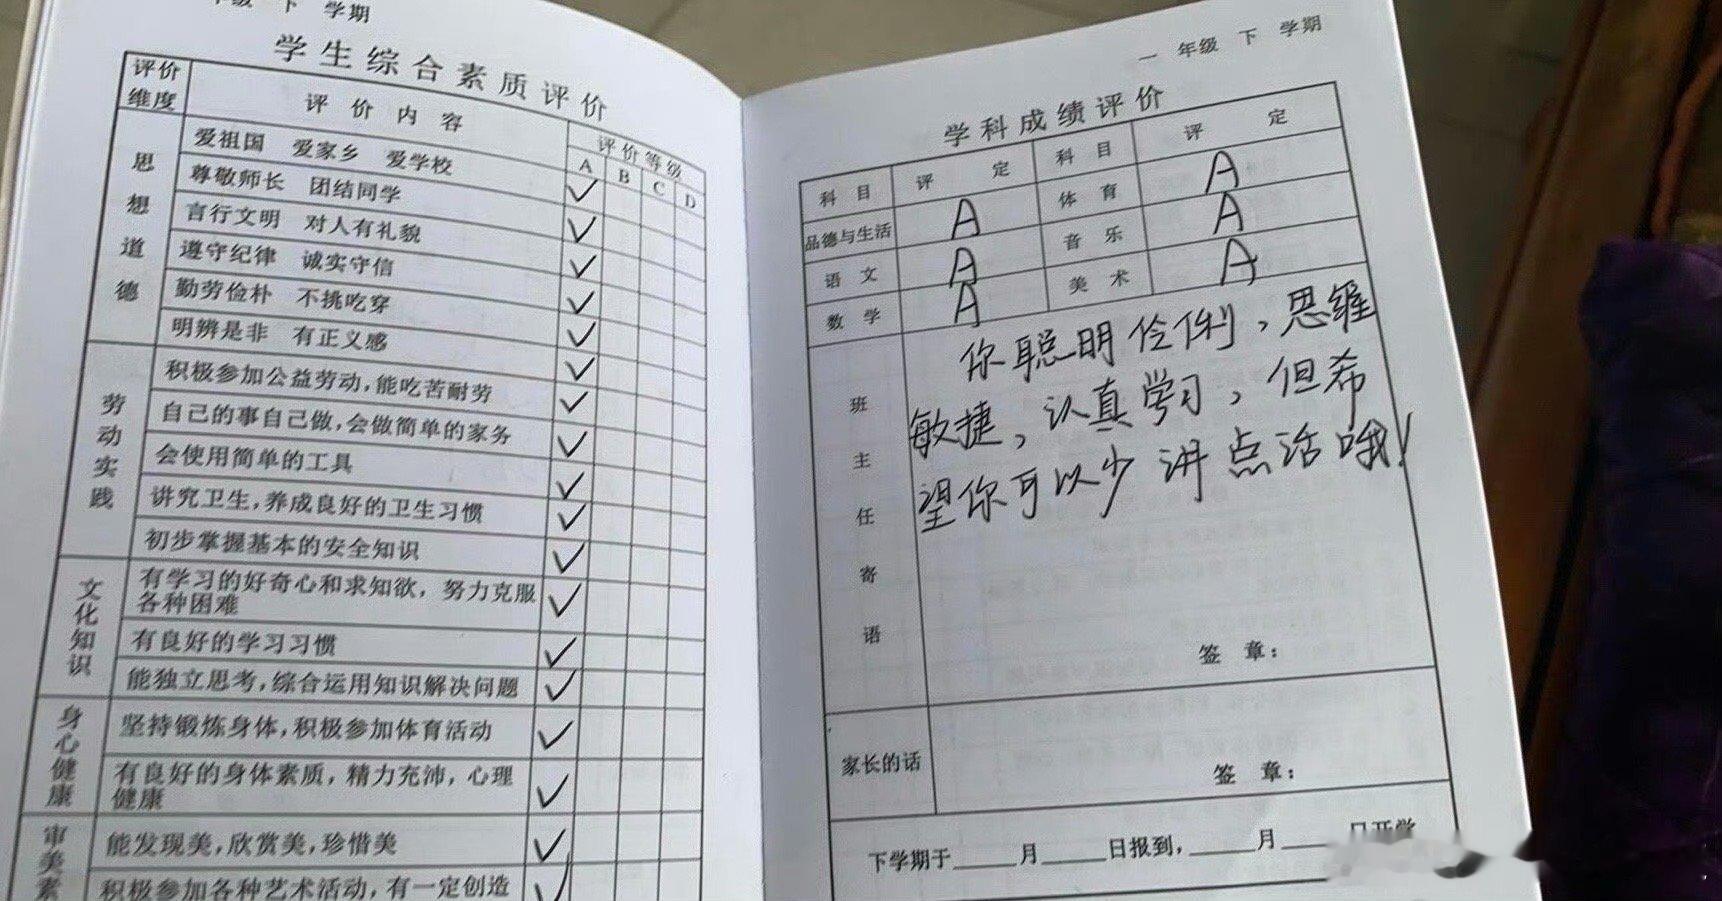 下 学期
学生综合素质评价
评价维度 评价内容 评价等级
A B C D
思想道德
爱祖国 爱家乡 爱学校 ✓
尊敬师长 团结同学 ✓
言行文明 对人有礼貌 ✓
遵守纪律 诚实守信 ✓
勤劳俭朴 不挑吃穿 ✓
明辨是非 有正义感 ✓
劳动实践
积极参加公益劳动,能吃苦耐劳 ✓
自己的事自己做,会做简单的家务 ✓
会使用简单的工具 ✓
讲究卫生,养成良好的卫生习惯 ✓
初步掌握基本的安全知识 ✓
文化知识
有学习的好奇心和求知欲，努力克服
各种困难 ✓
有良好的学习习惯 ✓
能独立思考,综合运用知识解决问题 ✓
身心健康
坚持锻炼身体,积极参加体育活动 ✓
有良好的身体素质，精力充沛，心理
健康 ✓
审美素
能发现美,欣赏美,珍惜美 ✓
积极参加各种艺术活动,有一定创造 ✓
一 年级 下 学期
学科成绩评价
科目 评定 科目 评定
品德与生活 A 体育 A
语文 A 音乐 A
数学 A 美术 A
班主任寄语
你聪明伶俐，思维
敏捷，认真学习，但希
望你可以少讲点话哦！
签 章：
家长的话
签 章：
下学期于____月____日报到，____月____日开学